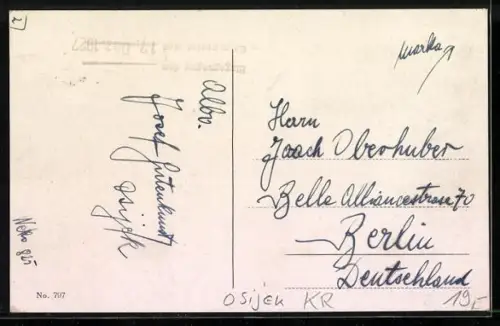 2
marka
Albv.
Josef Gutenkunst
Osijek
Herrn
Joach Oberhuber
Belle Alliancestrasse 70
Berlin
Deutschland
No. 797
OSIJEK KR
19,-